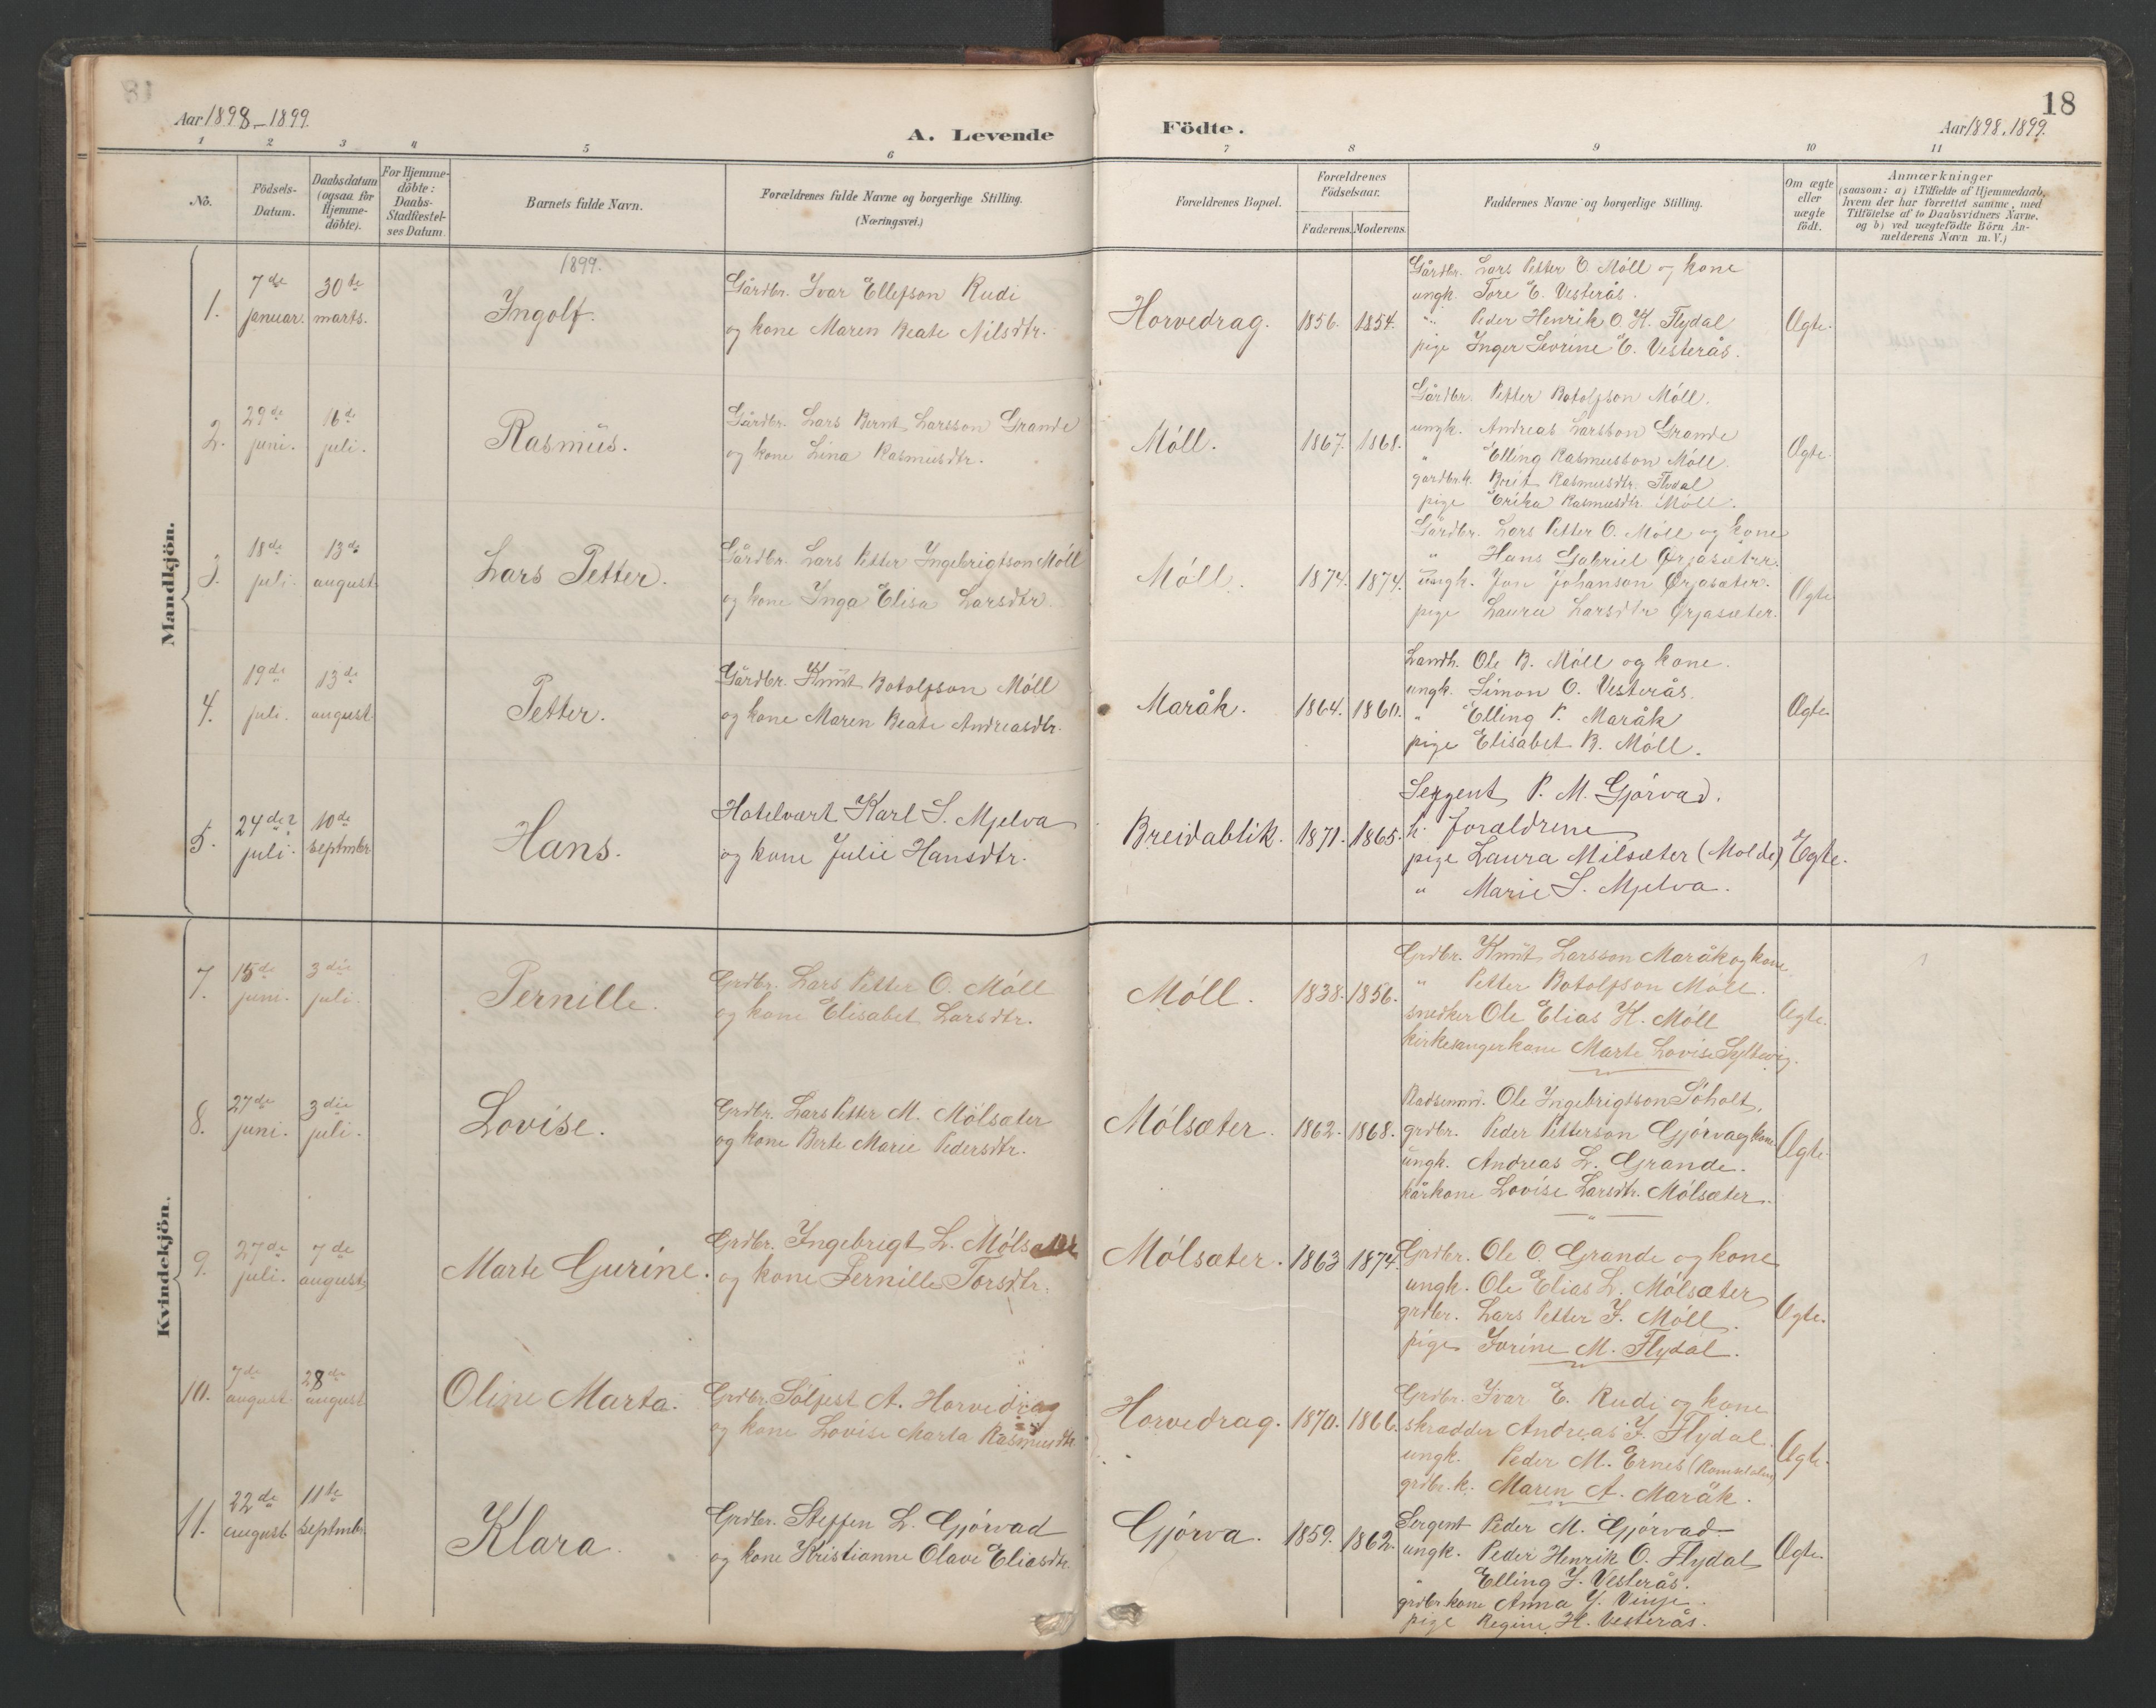 18
Aar 1898-1899.
A. Levende Födte.
Aar 1898, 1899.
1 2 3 4 5 6 7 8 9 10 11
No.
Födsels-
Datum.
Daabsdatum
(ogsaa for
Hjemme-
döbte).
For Hjemme-
döbte:
Daabs-
Stadfæstel-
ses Datum.
Barnets fulde Navn.
Forældrenes fulde Navne og borgerlige Stilling.
(Næringsvei.)
Forældrenes Bopæl.
Forældrenes
Födselsaar.
Faderens. Moderens.
Faddernes Navne og borgerlige Stilling.
Om ægte
eller
uægte
födt.
Anmærkninger
(saasom: a) i Tilfælde af Hjemmedaab,
hvem der har forrettet samme, med
Tilföielse af to Daabsvidners Navne.
og b) ved uægtefödte Börn An-
melderens Navn m. V.)
Mandkjön.
1899.
1.
7de
januar.
30te
marts.
Ingolf.
Gårdbr. Ivar Ellefson Rudi
og kone Maren Beate Nilsdtr.
Horvedrag.
1856.
1854.
Gårdbr. Lars Petter O. Móll og kone
ungk. Tore E. Vesterås.
" Peder Henrik O. K. Flydal
pige Inger Severine E. Vesterås.
Ægte.
2.
29de
juni.
16de
juli.
Rasmus.
Gårdbr. Lars Bernt Larsson Grande
og kone Lina Rasmusdtr.
Móll.
1867.
1868.
Gårdbr. Petter Botolfson Móll.
ungk. Andreas Larsson Grande
" Elling Rasmusson Móll.
gardbr.k. Brit Rasmusdtr. Flydal
pige Erika Rasmusdtr. Móll.
Ægte.
3.
18de
juli.
13de
august.
Lars Petter.
Gårdbr. Lars Petter Ingebrigtson Móll
og kone Inga Elisa Larsdtr.
Móll.
1874.
1874.
Gårdbr. Lars Petter O. Móll og kone
" Hans Gabriel Ørjasæter.
ungk. Jon Johanson Ørjasæter.
pige Laura Larsdtr Ørjasæter.
Ægte
4.
19de
juli.
13de
august
Petter.
Gårdbr. Knut Botolfson Móll
og kone Maren Beate Andreasdtr.
Maråk.
1864.
1860.
Landh. Ole B. Móll og kone.
ungk. Simon O. Vesterås.
" Elling P. Maråk
pige Elisabet B. Móll.
Ægte
5.
24de?
juli.
10de
septmbr.
Hans.
Hotelvært Karl S. Mjelva
og kone Julie Hansdtr.
Breidablik.
1871.
1865.
Sergent P. M. Gjórvad.
h. forældrene
pige Laura Milsæter (Molde)
" Marie S. Mjelva.
Ægte.
Kvindekjön.
7.
15de
juni.
3die
juli.
Pernille.
Grdbr. Lars Petter O. Móll
og kone Elisabet Larsdtr.
Móll.
1838.
1856.
Grdbr. Knut Larsson Maråk og kone
" Petter Botolfson Móll.
snedker Ole Elias K. Móll
kirkesangerkone Marte Lovise Syltevig.
Ægte.
8.
27de
juni.
3die
juli.
Lovise.
Grdbr. Lars Petter M. Mólsæter
og kone Berte Marie Pedersdtr.
Mólsæter.
1862.
1868.
Pladsemnd. Ole Ingebrigtson Sóholt,
grdbr. Peder Petterson Gjórva og kone
ungk. Andreas L. Grande.
kårkone Lovise Larsdtr. Mólsæter.
Ægte.
9.
27de
juli.
7de
august.
Marte Gurine.
Grdbr. Ingebrigt L. Mólsæter
og kone Pernille Torsdtr.
Mólsæter.
1863
1874.
Grdbr. Ole O. Grande og kone
ungk. Ole Elias L. Mólsæter
grdbr. Lars Petter I. Móll.
pige Ivrine M. Flydal.
Ægte.
10.
7de
august
28de
august
Oline Marta.
Grdbr. Sólfest A. Horvedrag
og kone Lovise Marta Rasmusdtr.
Horvedrag.
1870.
1866.
Grdbr. Ivar E. Rudi og kone
skrædder Andreas I. Flydal.
ungk. Peder M. Ernes (Romsdalen)
grdbr. k. Maren A. Maråk.
Ægte.
11.
22de
august
11te
septmbr.
Klara.
Grdbr. Steffen L. Gjórvad
og kone Kristianne Olave Eliasdtr.
Gjórva.
1859.
1862.
Sergent Peder M. Gjórvad.
ungk. Peder Henrik O. Flydal
" Elling I. Vesterås.
grdbr. kone Anna Y. Vinje.
pige Regine H. Vesterås.
Ægte.